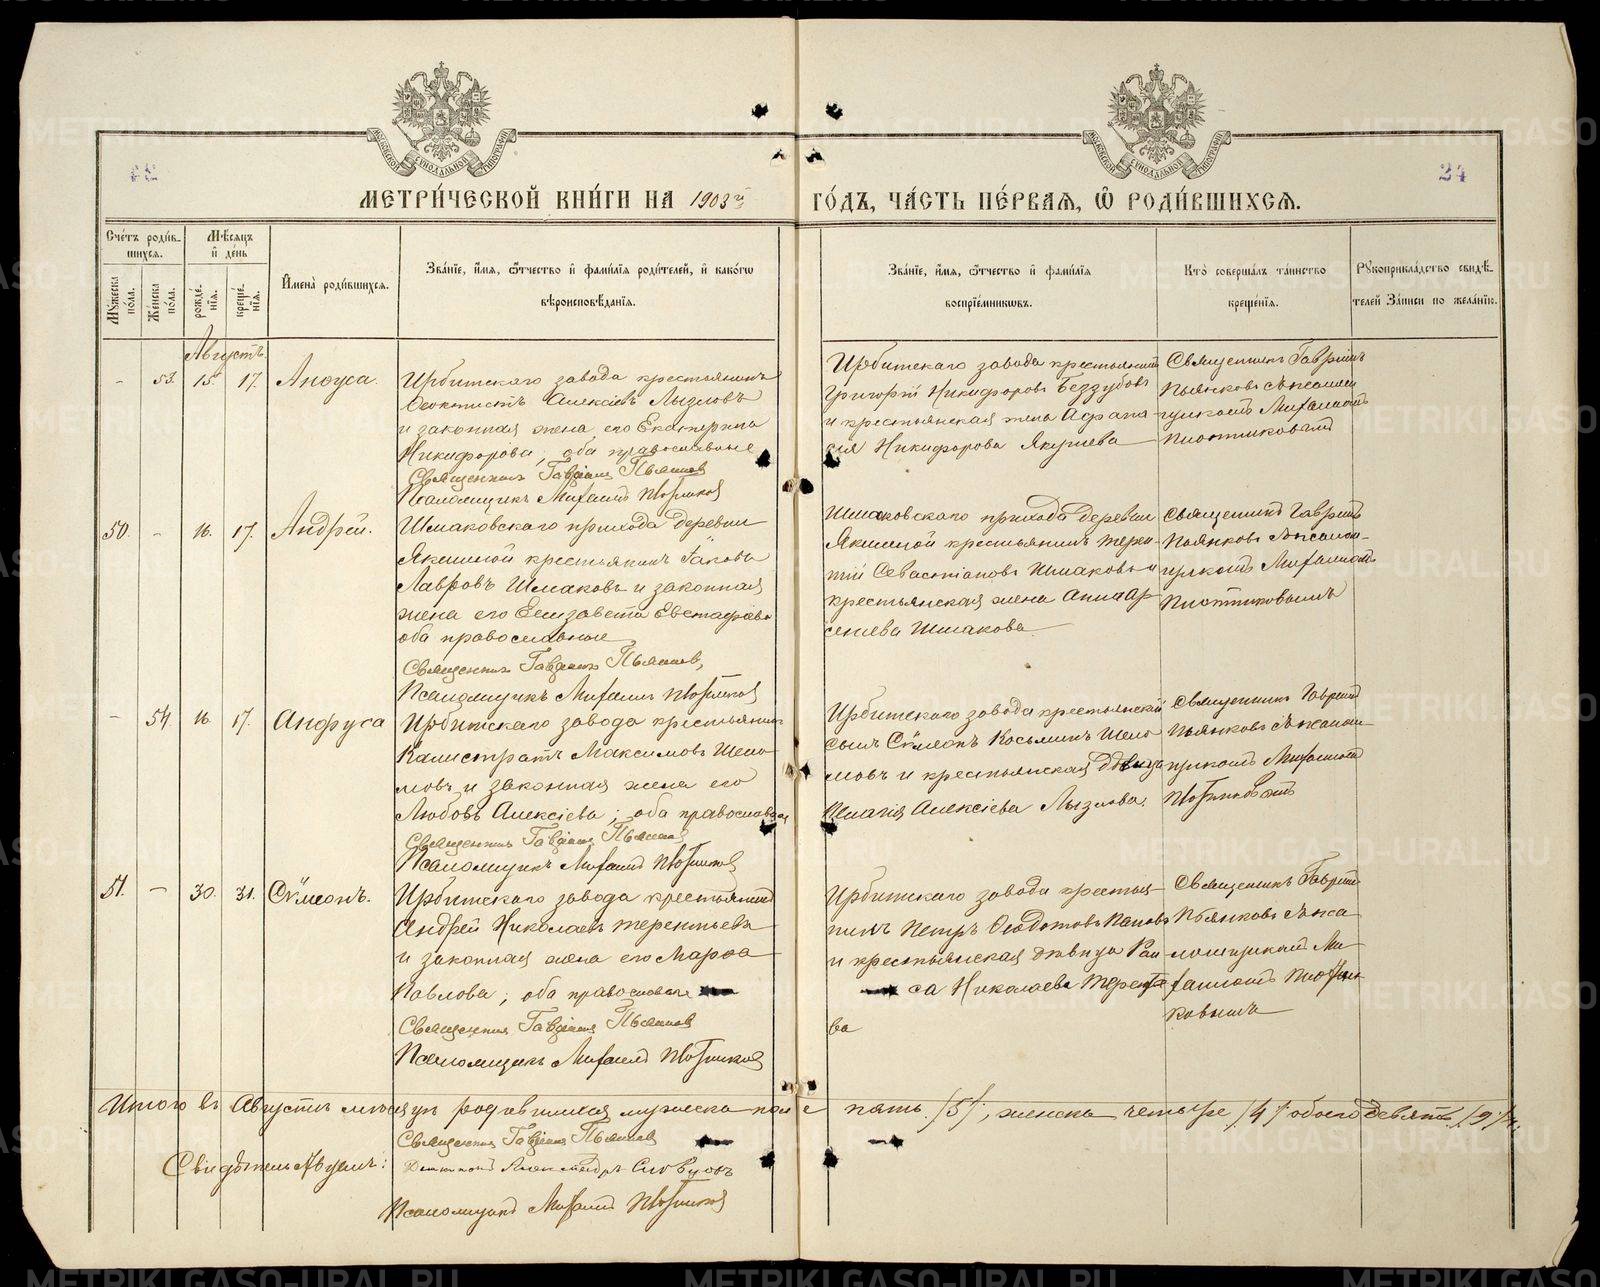 МЕТРИ́ЧЕСКОЙ КНИ́ГИ НА 1903й ГО́ДЪ, ЧА́СТЬ ПЕ́РВАЯ, Ѡ РОДИ́ВШИХСЯ.
24
Сче́тъ роди́в-
шихся.
Му́жеска по́ла.
Же́нска по́ла.
Мѣ́сяцъ
и де́нь
рожде́-
нїя.
креще́-
нїя.
Имена̀ роди́вшихся.
Зва́нїе, и́мя, ѻ́тчество и фами́лїя роди́телей, и како́гѡ
вѣроисповѣ́данїя.
Зва́нїе, и́мя, ѻ́тчество и фами́лїя
воспрїе́мникѡвъ.
Кто̀ соверша́лъ та́инство
креще́нїя.
Рукоприкла́дство свидѣ́-
телей За́писи по жела́нїю.
Августъ
- 53. 15 17. Анфуса.
Ирбитскаго завода крестьянинъ
Феоктистъ Алексіевъ Лызловъ
и законная жена его Екатерина
Никифорова, оба православные
Священникъ Гавріилъ Пьянков
Псаломщикъ Михаилъ
Ирбитскаго завода крестьянинъ
Григорій Никифоровъ Беззубовъ
и крестьянская жена Афана-
сія Никифорова Якушева
Священникъ Гавріилъ
Пьянковъ съ псалом-
щикомъ Михаиломъ
50. - 16. 17. Андрей.
Шмаковскаго прихода деревни
Якшиной крестьянинъ Іаковъ
Лавровъ Шмаковъ и законная
жена его Елизавета Евстафіева
оба православные
Священникъ Гавріилъ Пьянков,
Псаломщикъ Михаилъ
Шмаковскаго прихода деревни
Якшиной крестьянинъ Терен-
тій Севастіановъ Шмаковъ и
крестьянская жена Анна Ар-
сеніева Шмакова
Священникъ Гавріилъ
Пьянковъ съ псалом-
щикомъ Михаиломъ
- 54. 16. 17. Анфуса
Ирбитскаго завода крестьянинъ
Каллистратъ Максимовъ Шело-
мовъ и законная жена его
Любовь Алексіева; оба православные
Священникъ Гавріилъ Пьянков
Псаломщикъ Михаилъ
Ирбитскаго завода крестьянскій
сынъ Сѵмеонъ Косьминъ Шело-
мовъ и крестьянская дѣвица
Пелагія Алексіева Лызлова.
Священникъ Гавріилъ
Пьянковъ съ псалом-
щикомъ Михаиломъ
51. - 30. 31. Сѵмеонъ.
Ирбитскаго завода крестьянинъ
Андрей Николаевъ Терентьевъ
и законная жена его Марѳа
Павлова; оба православные
Священникъ Гавріилъ Пьянков
Псаломщикъ Михаилъ
Ирбитскаго завода крестья-
нинъ Петръ Ѳеодотовъ Пановъ
и крестьянская дѣвица Раи-
са Николаева Терентье-
ва
Священникъ Гавріилъ
Пьянковъ съ пса-
ломщикомъ Ми-
хаиломъ
Итого въ Августѣ мѣсяцѣ родившихся мужеска пола пять /5/, женска четыре /4/ обоего девять /9/.
Священникъ Гавріилъ Пьянков
Александръ Словцовъ
Псаломщикъ Михаилъ
METRIKI.GASO-URAL.RU